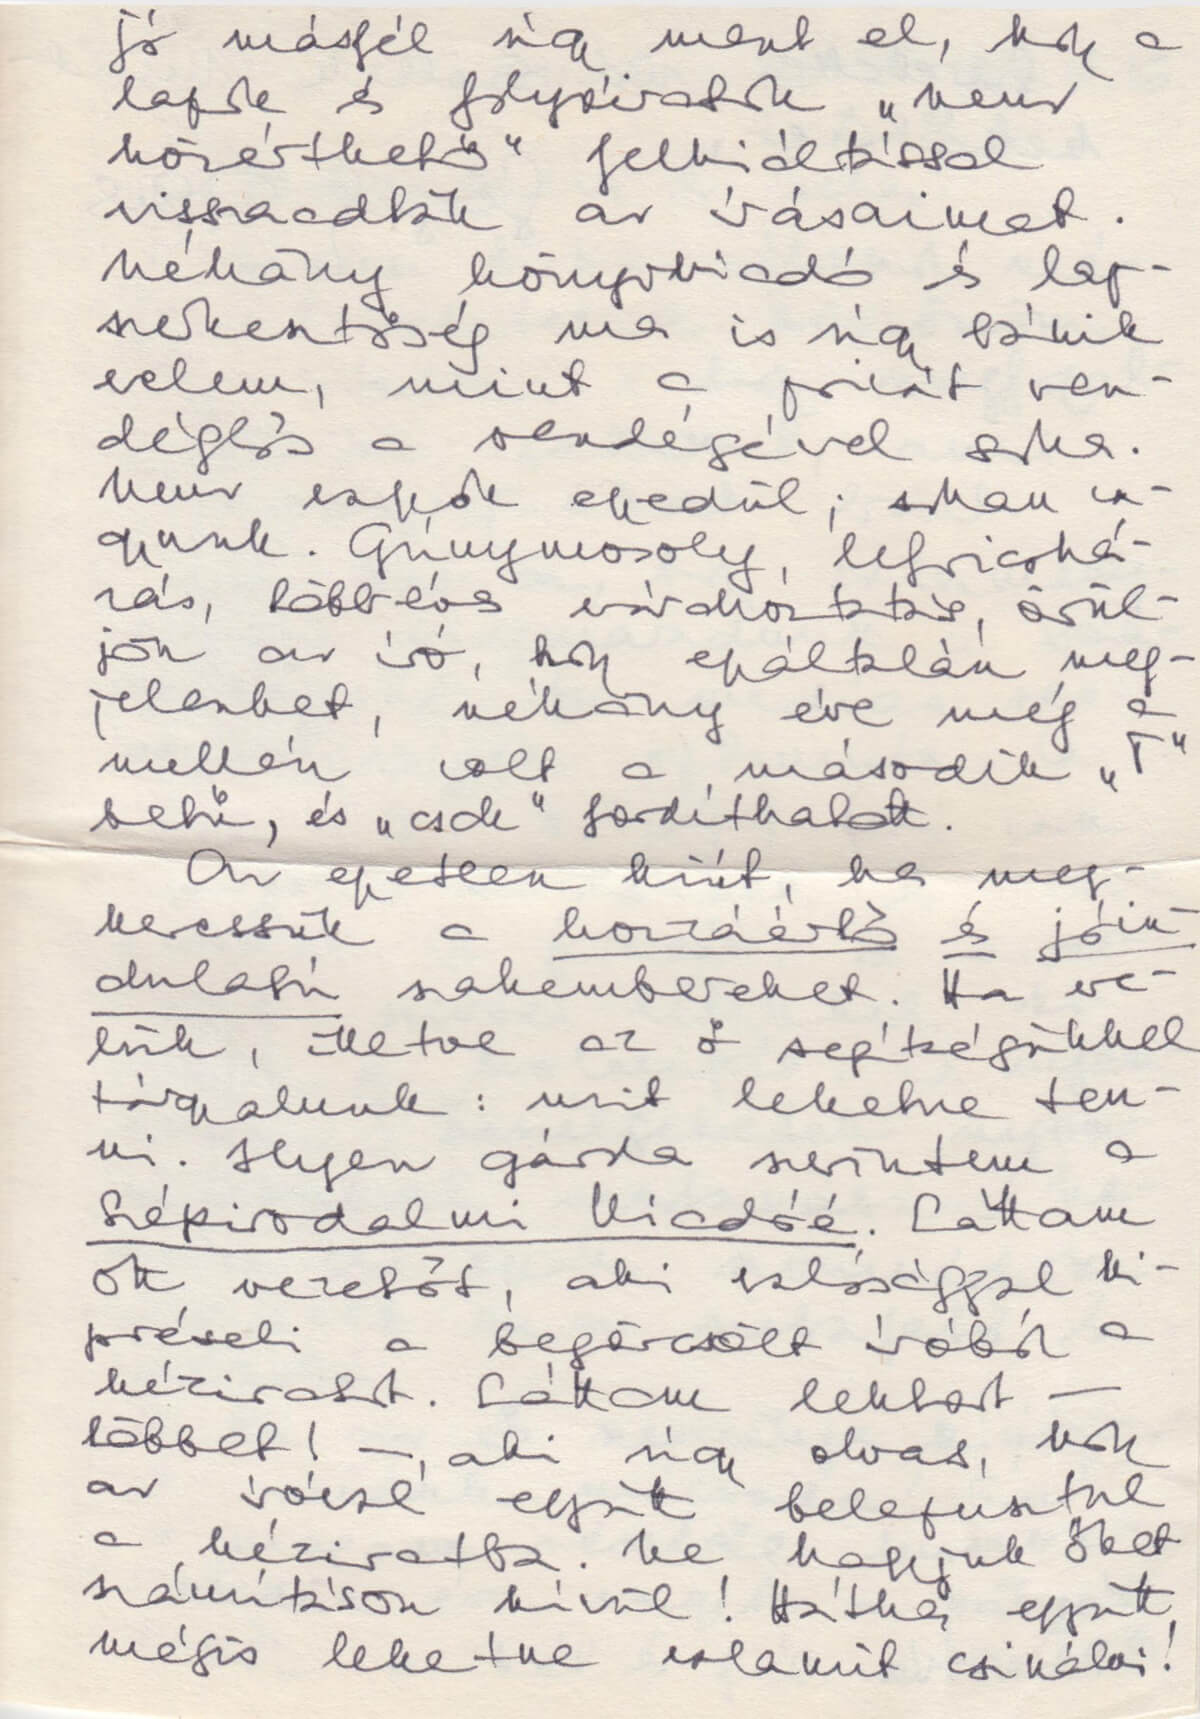 jó másfél úgy ment el, hogy a
lapok és folyóiratok „nem
közérthető" felkiáltással
visszaadták az írásaimat.
Néhány könyvkiadó és lap-
szerkesztőség ma is úgy bánik
velem, mint a privát ven-
déglős a vendégével soha.
Nem vagyok egyedül; sokan va-
gyunk. Gúnymosoly, lefricská-
zás, többéves várakoztatás, örül-
jön az író, hogy egyáltalán meg-
jelenhet, néhány éve még a
mellén volt a második „T"
betű, és „csak" fordíthatott.
Az egyetlen kiút, ha meg-
keressük a hozzáértő és jóin-
dulatú szakembereket. Ha ve-
lük, illetve az ő segítségükkel
tárgyalunk: mit lehetne ten-
ni. Ilyen gárda szerintem a
Szépirodalmi Kiadóé. Láttam
ott vezetőt, aki valósággal ki-
préseli a begörcsölt íróból a
kéziratot. Láttam lektort —
többet! —, aki úgy olvas, hogy
az íróval együtt belepusztul
a kéziratba. Ne hagyjuk őket
számításon kívül! Hátha együtt
mégis lehetne valamit csinálni!